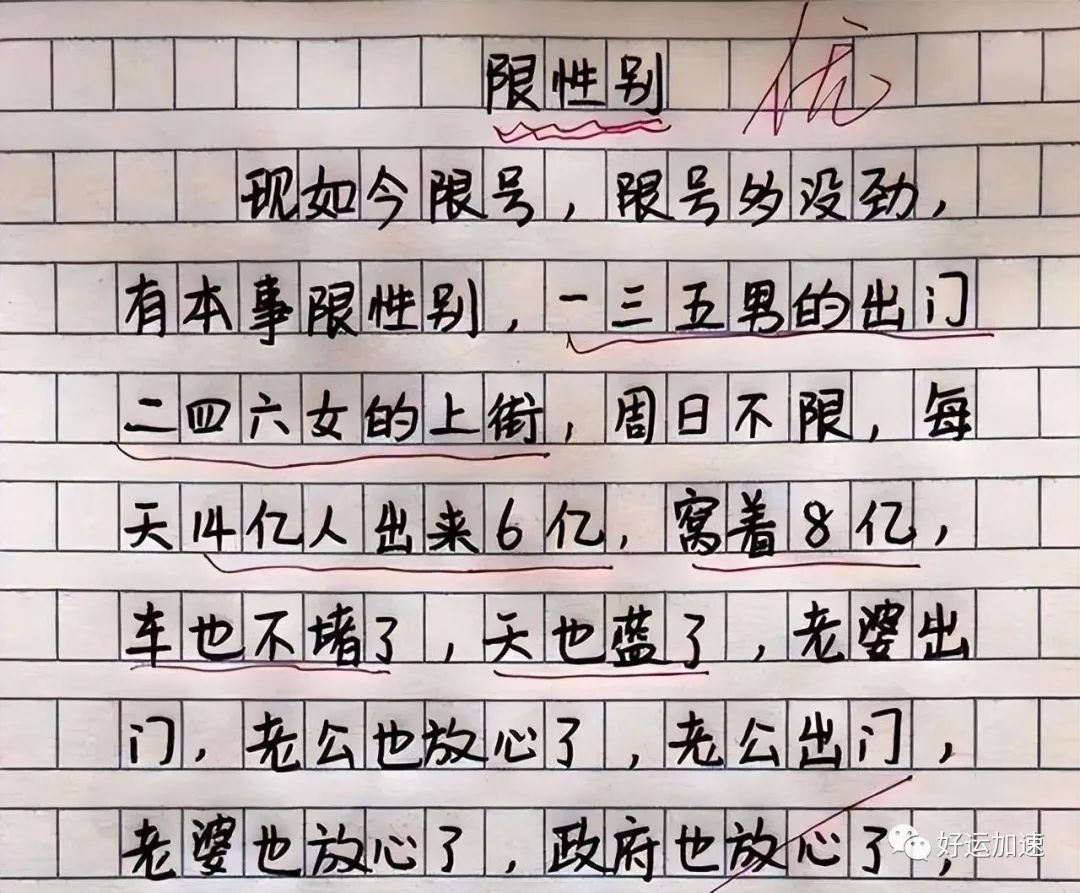 限性别 优
现如今限号，限号多没劲，
有本事限性别，一三五男的出门
二四六女的上街，周日不限，每
天14亿人出来6亿，窝着8亿，
车也不堵了，天也蓝了，老婆出
门，老公也放心了，老公出门，
老婆也放心了，政府也放心了，
好运加速